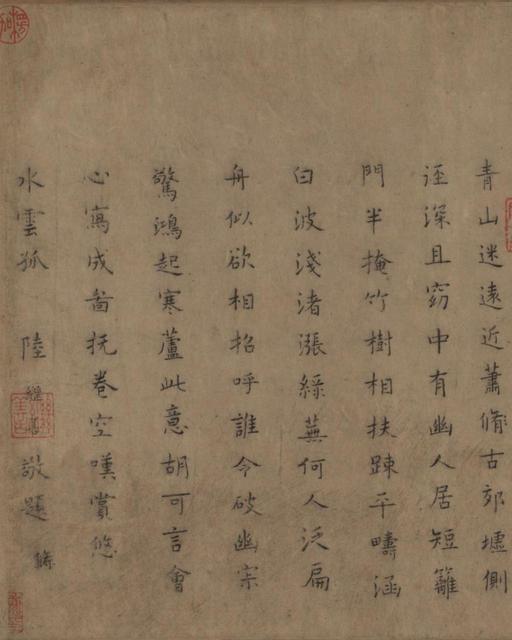 青山迷遠近蕭脩古郊墟側
逕深且窈中有幽人居短籬
門半掩竹樹相扶踈平疇涵
白波淺渚漲綠蕪何人泛扁
舟似欲相招呼誰令破幽
驚鴻起寒蘆此意胡可言會
心寫成啚抚卷空嘆賞悠
水雲孤 陸繼善敬題